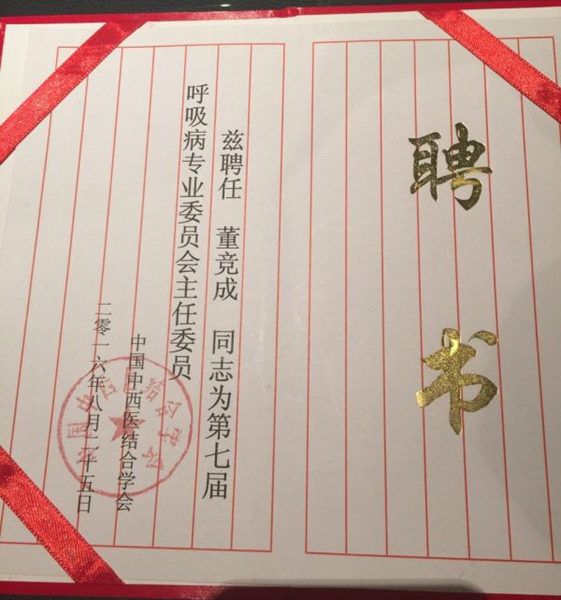 聘书
兹聘任 董竞成 同志为第七届
呼吸病专业委员会主任委员
中国中西医结合学会
二零一六年八月二十五日
中国中西医结合学会